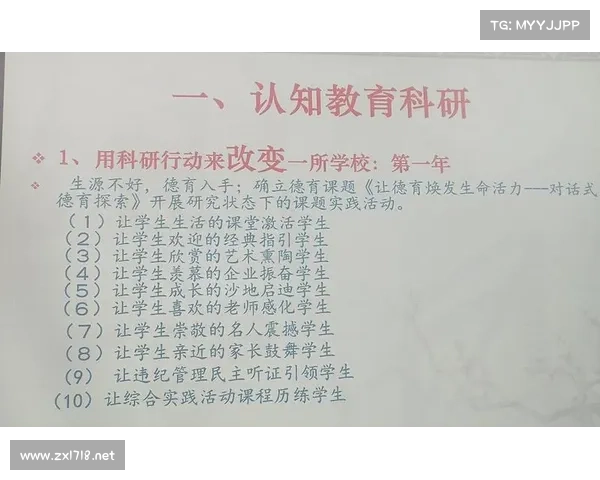 TG: MYYJJPP
一、认知教育科研
❖ 1、用科研行动来改变一所学校：第一年
❖ 生源不好，德育入手；确立德育课题《让德育焕发生命活力——对话式
德育探索》开展研究状态下的课题实践活动。
（1）让学生生活的课堂激活学生
（2）让学生欢迎的经典指引学生
（3）让学生欣赏的艺术熏陶学生
（4）让学生羡慕的企业振奋学生
（5）让学生成长的沙地启迪学生
（6）让学生喜欢的老师感化学生
（7）让学生崇敬的名人震撼学生
（8）让学生亲近的家长鼓舞学生
（9） 让违纪管理民主听证引领学生
（10）让综合实践活动课程历练学生
www.zx1718.net